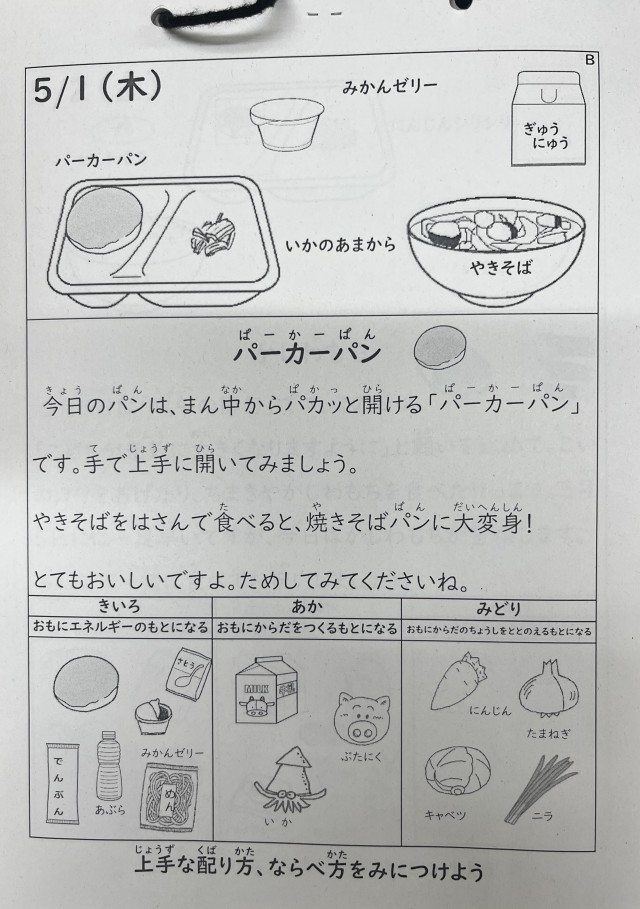 B
5/1(木)
みかんゼリー
ぎゅう
にゅう
パーカーパン
いかのあまから
やきそば
ぱーかーぱん
パーカーパン
きょう ぱん なか ぱかっ ひら ぱーかーぱん
今日のパンは、まん中からパカッと開ける「パーカーパン」
て じょうず ひら
です。手で上手に開いてみましょう。
た や ぱん だいへんしん
やきそばをはさんで食べると、焼きそばパンに大変身!
とてもおいしいですよ。ためしてみてくださいね。
きいろ あか みどり
おもにエネルギーのもとになる おもにからだをつくるもとになる おもにからだのちょうしをととのえるもとになる
さとう
MILK
にんじん
たまねぎ
みかんゼリー
ぶたにく
でんぷん
あぶら
めん
いか
キャベツ
ニラ
じょうず くば かた かた
上手な配り方、ならべ方をみにつけよう